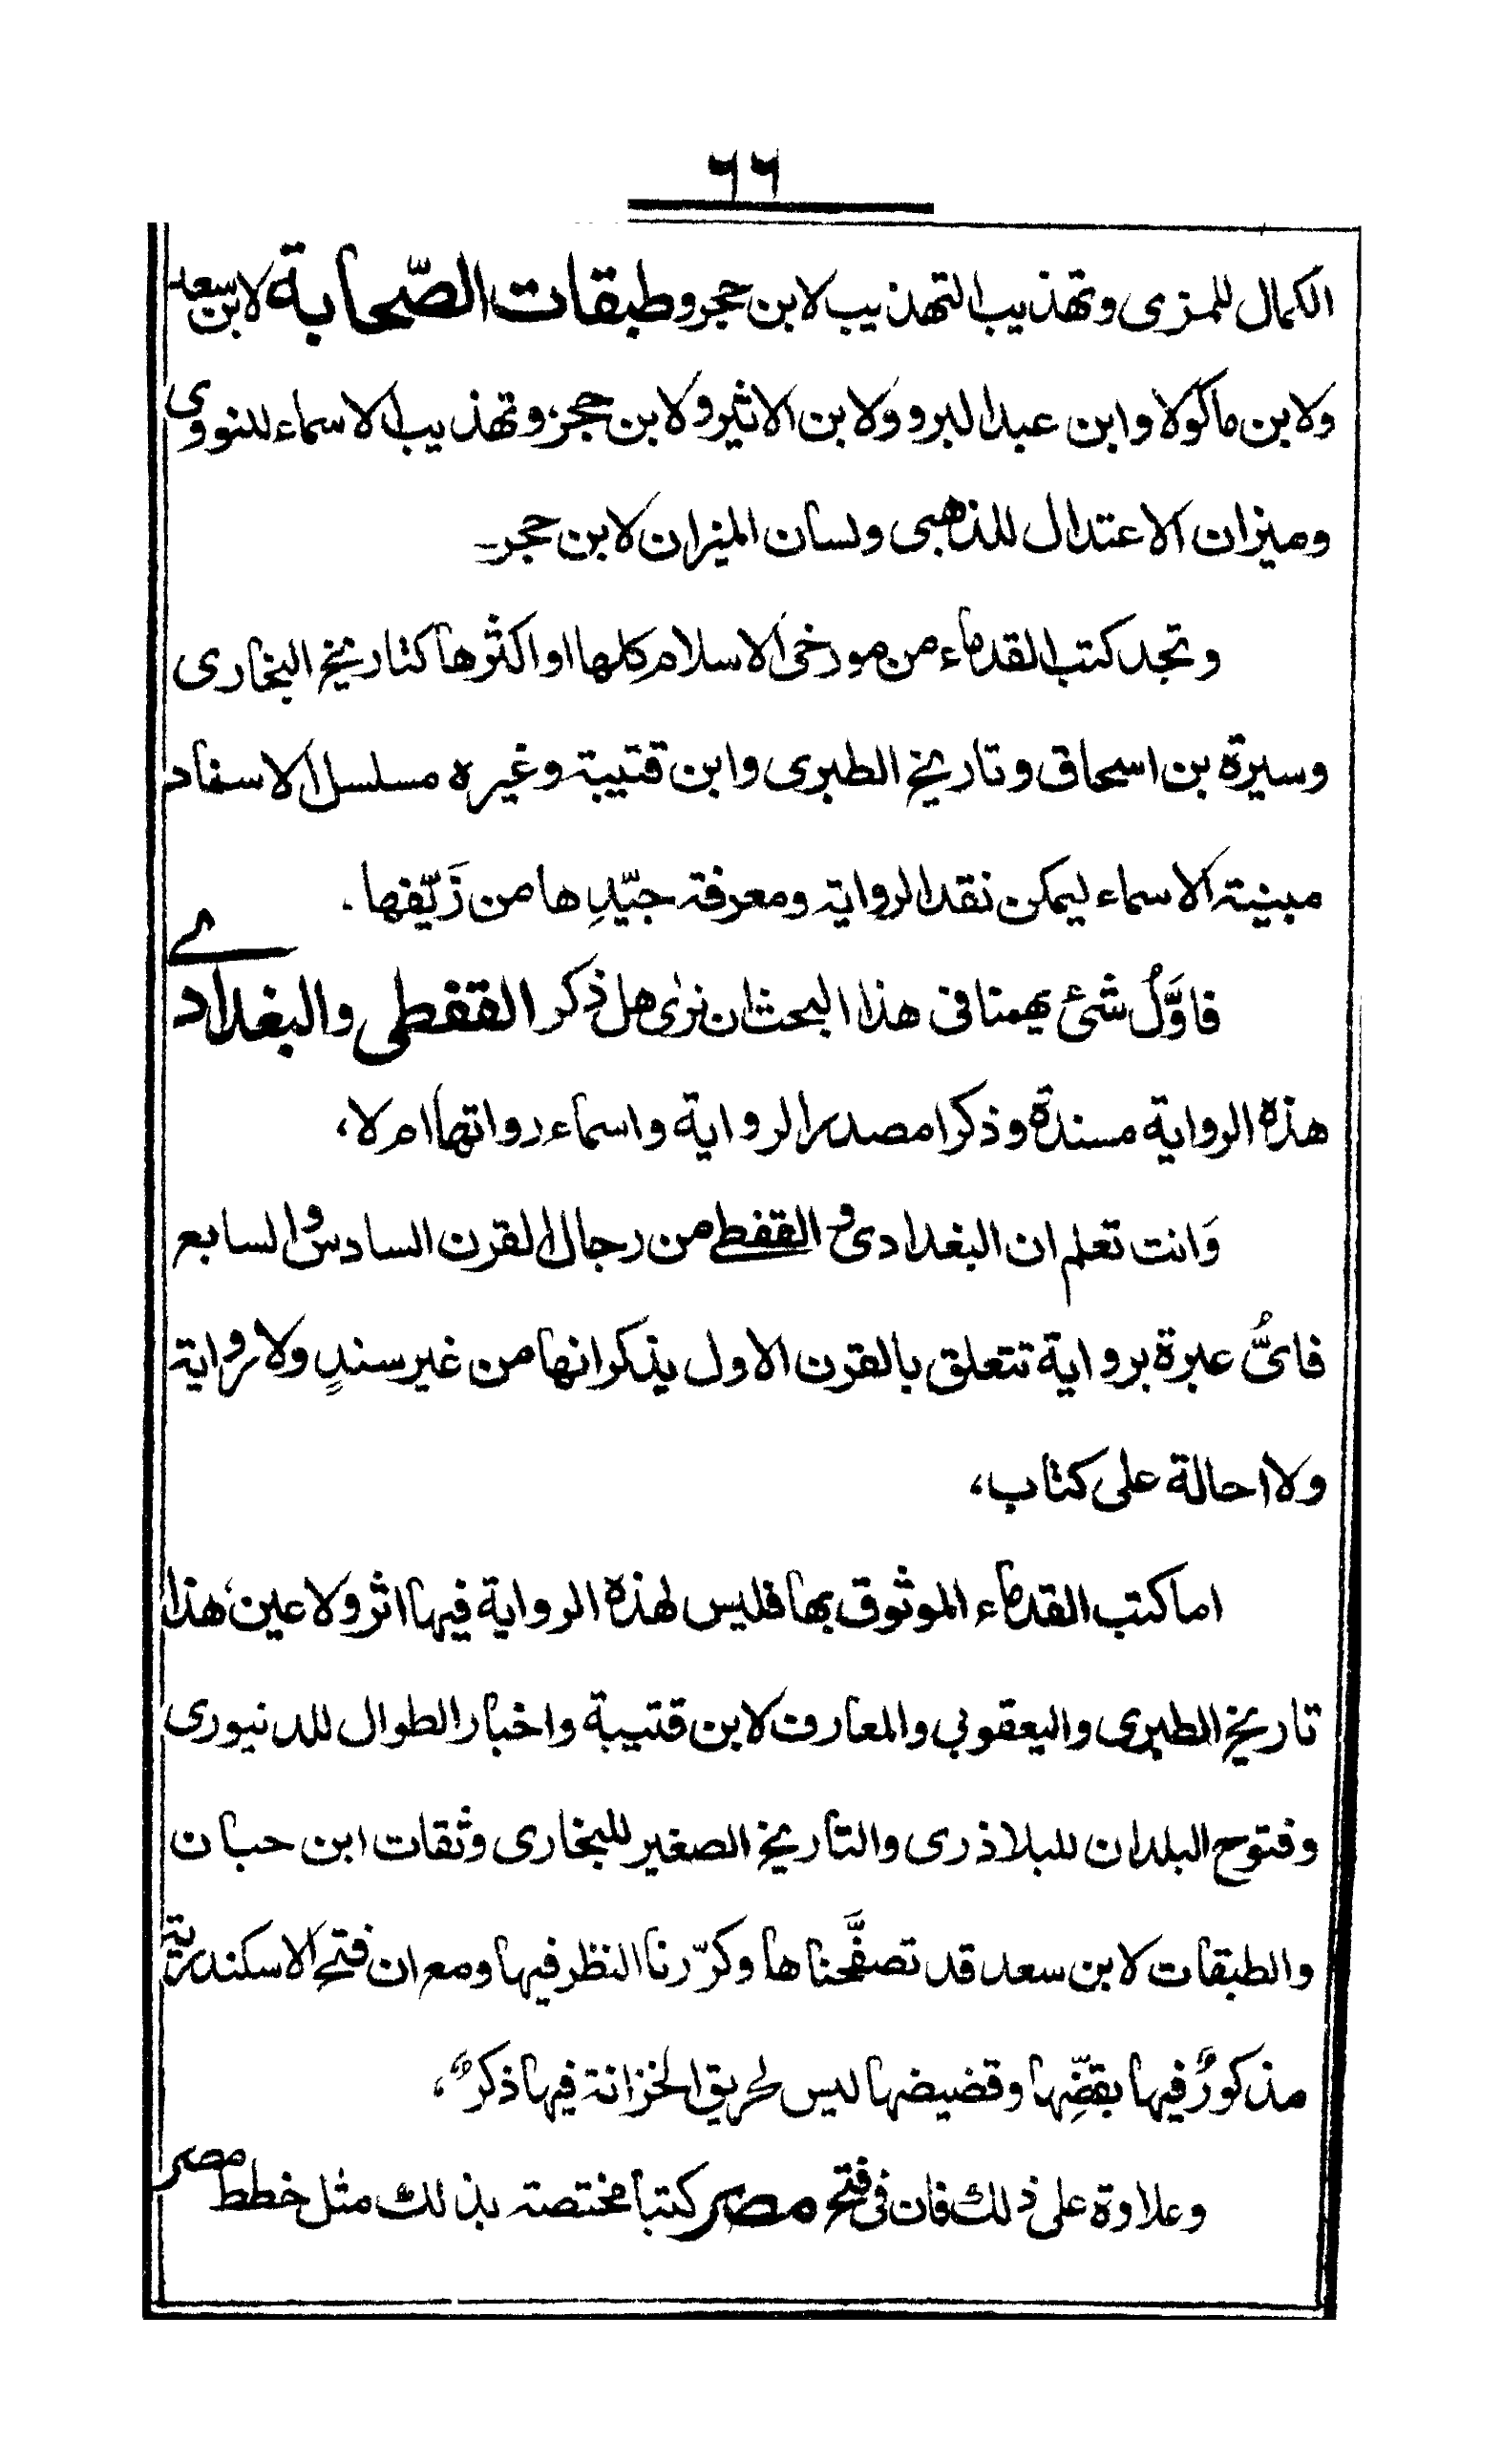 ٦٦
الكمال للمزى وتهذيب التهذيب لابن حجر وطبقات الصّحابة لابن سعد
ولابن ماكولا وابن عبد البرو ولابن الاثير ولابن حجز وتهذيب الاسماء للنووى
وميزان الاعتدال للذهبى ولسان الميزان لابن حجر۔
وتجد كتب القدماء من مورخى الاسلام كلها او اكثرها كتاريخ البخارى
وسيرة بن اسحاق وتاريخ الطبرى وابن قتيبة وغيره مسلسل الاسناد
مبنية الاسماء ليمكن نقد الرواية ومعرفة جيّدِها من زَيّفها۔
فاوَّلُ شئ يهمنا فى هذا البحث ان نرى هل ذكر القفطى والبغدادے
هذه الرواية مسندة وذكرا مصدر الرواية واسماء رواتها ام لا،
وَانت تعلم ان البغدادى و القفطے من رجال القرن السادس والسابع
فاىُّ عبرة برواية تتعلق بالقرن الاول يذكرانها من غير سندٍ ولا رواية
ولا احالة على كتاب،
اما كتب القدماء الموثوق بها فليس لهذه الرواية فيها اثر ولا عين، هذا
تاريخ الطبرى واليعقوبى والمعارف لابن قتيبة واخبار الطوال للدنيورى
وفتوح البلدان للبلاذرى والتاريخ الصغير للبخارى وثقات ابن حبان
والطبقات لابن سعد قد تصفَّحناها وكرّرنا النظر فيها ومع ان فتح الاسكندرية
مذكورٌ فيها بقضِّها وقضيضها ليس لحريق الخزانة فيها ذكرٌ،
وعلاوة على ذلك فان فى فتح مصر كتبا مختصة بذلك مثل خطط مصر